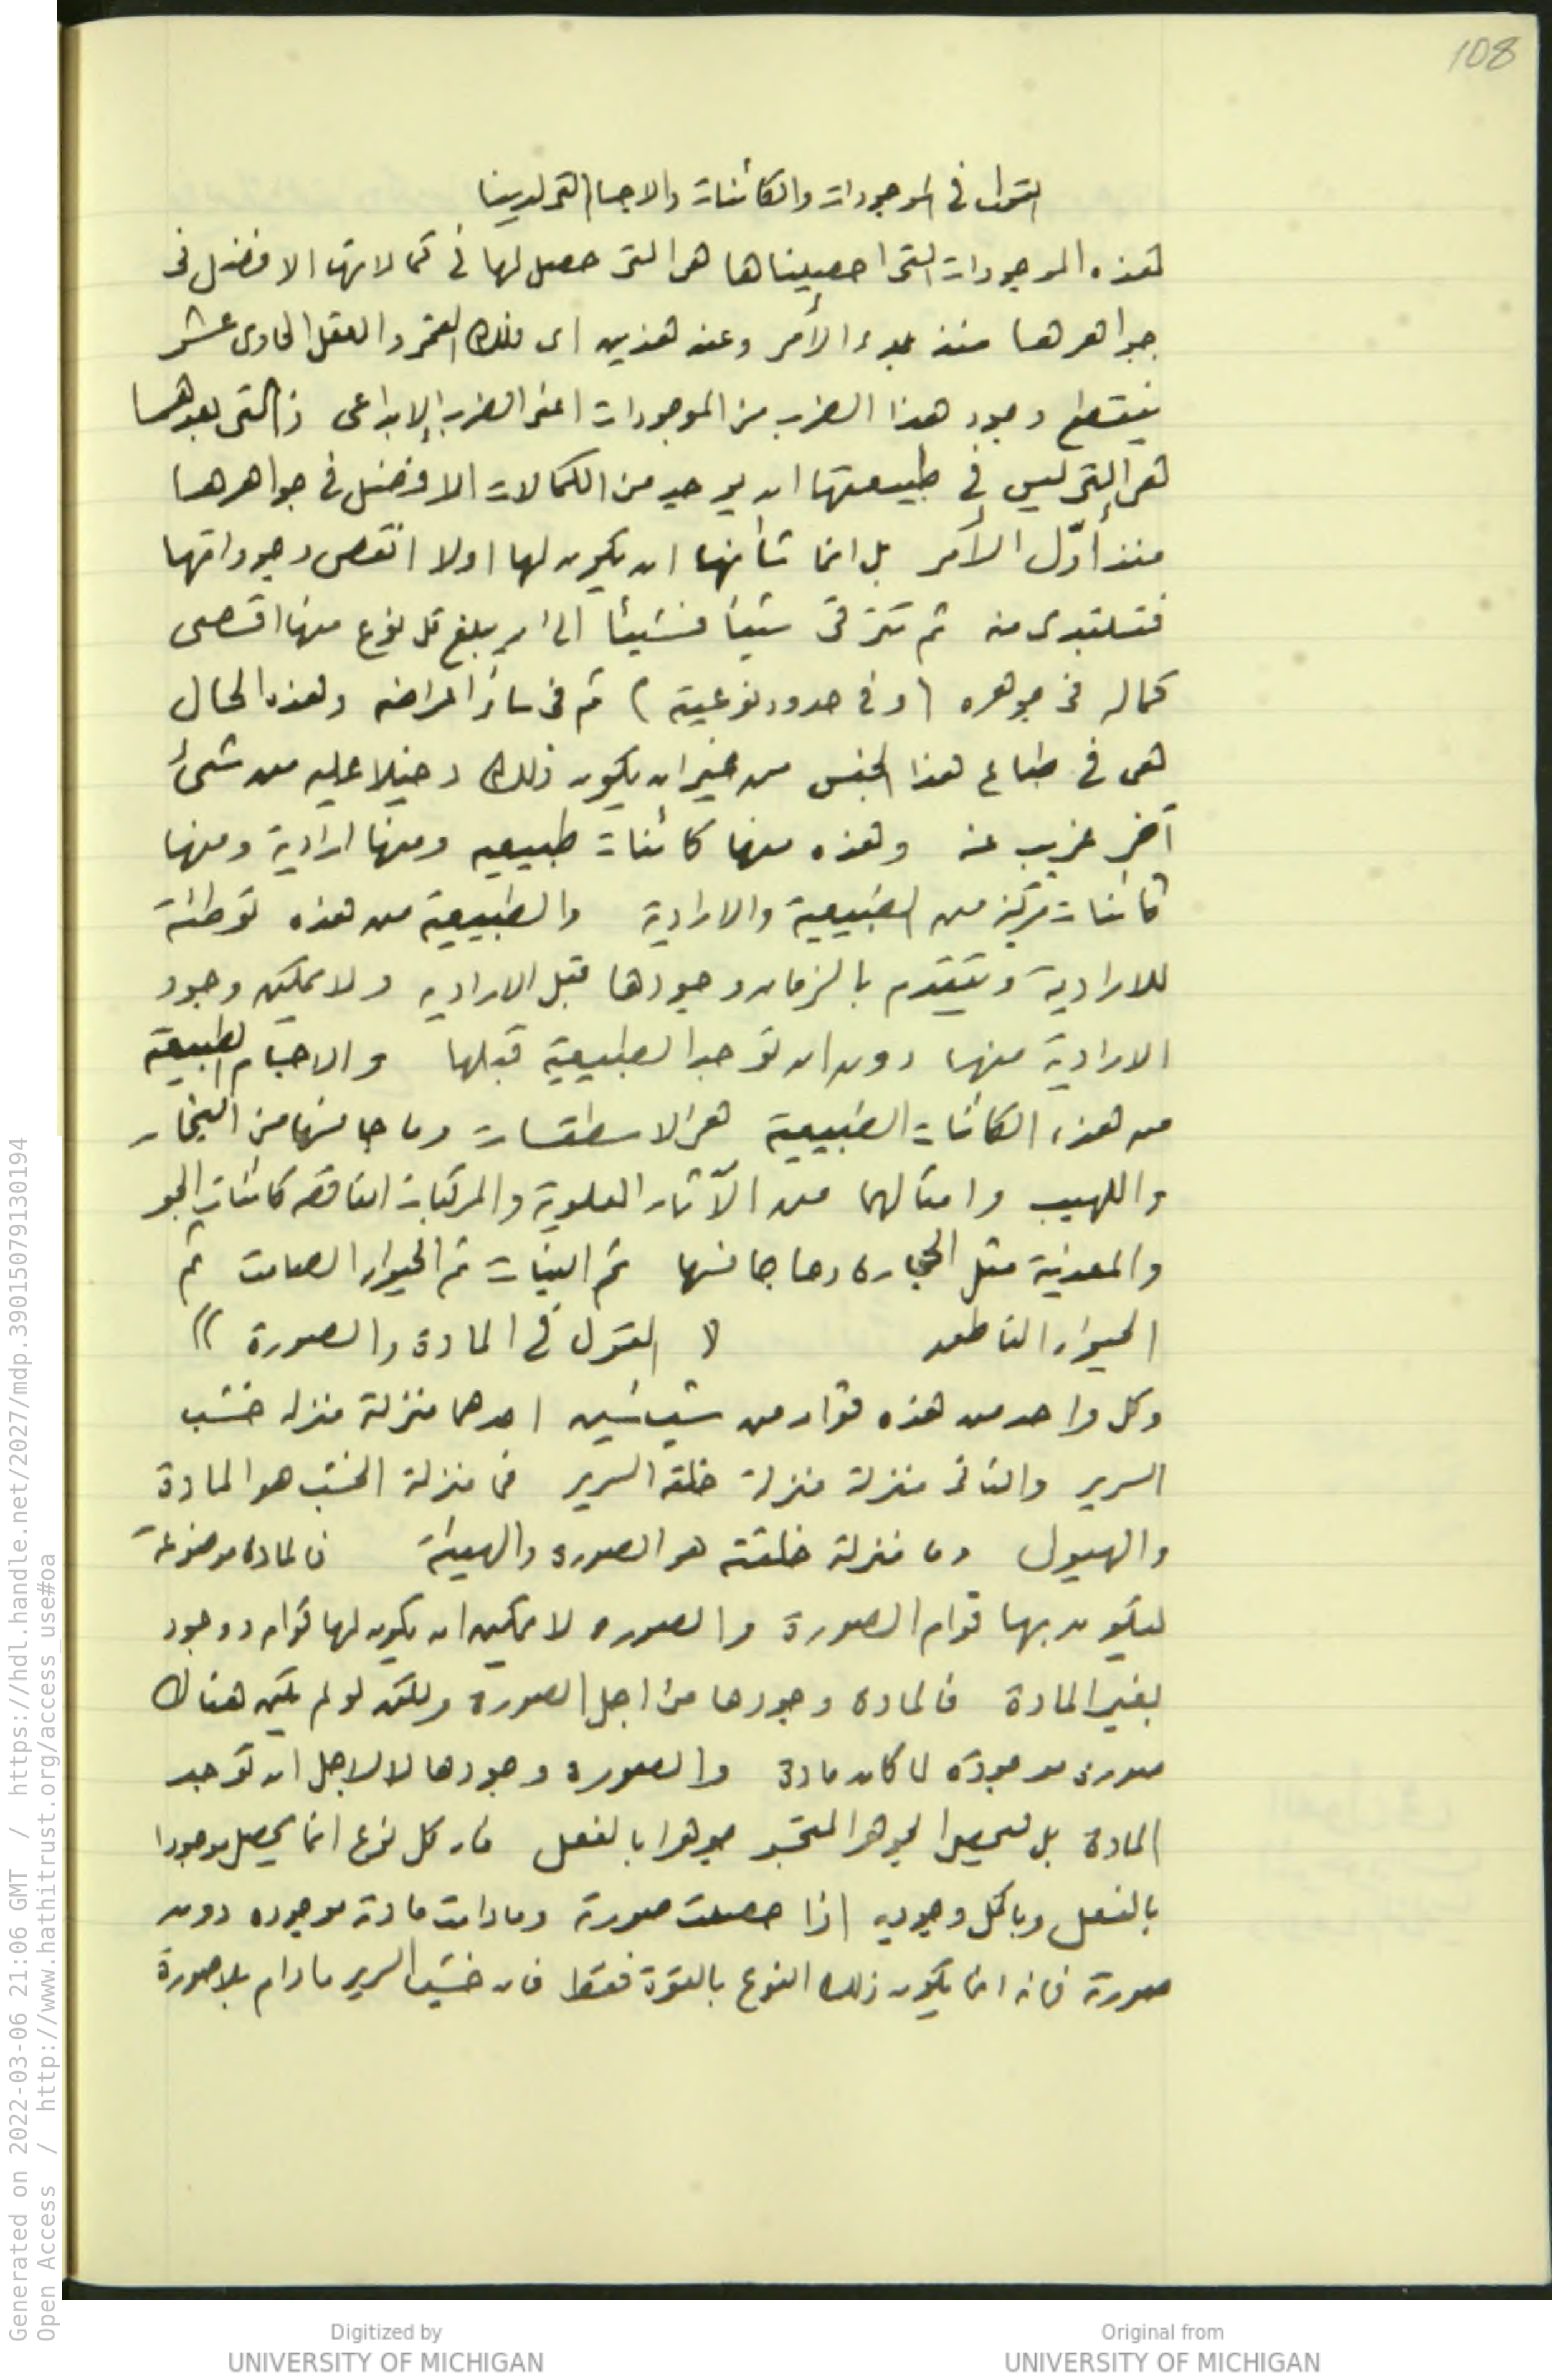 108
القول في الموجودات والكائنات والاجسام التى لدينا
فهذه الموجودات التى احصيناها هى التى حصل لها فى كمالاتها الافضل فى
جواهرها منذ بدء الأمر وعند هذين اى فلك القمر والعقل الحادى عشر
ينقطع وجود هذا الضرب من الموجودات اعنى الضرب الإبداعى والتى بعدهما
هى التى ليس فى طبيعتها ان يوجد من الكمالات الافضل فى جواهرها
منذ أوّل الأمر بل انما شأنها ان يكون لها اولا انقص وجوداتها
فتبتدى منه ثم تترقى شيئا فشيئا الى ان يبلغ كل نوع منها اقصى
كماله فى جوهره (وفى حدود نوعيته) ثم فى سائر اعراضه وهذه الحال
هى فى طباع هذا الجنس من غير ان يكون ذلك دخيلا عليه من شىء
آخر غريب عنه وهذه منها كائنات طبيعيه ومنها ارادية ومنها
كائنات مركبة من الطبيعية والارادية والطبيعية من هذه توطئة
للارادية ويتقدم بالزمان وجودها قبل الاراديه ولا يمكن وجود
الارادية منها دون ان توجد الطبيعية قبلها والاجسام الطبيعية
من هذه الكائنات الطبيعية هى الاسطقسات وما جانسها من البخار
واللهيب وامثالهما من الآثار العلوية والمركبات الناقصه كائنات الجو
والمعدنية مثل الحجارة وما جانسها ثم النبات ثم الحيوان الصامت ثم
الحيوان الناطق (( القول فى المادة والصورة ))
وكل واحد من هذه قوامه من شيئين احدهما منزلة منزله خشب
السرير والثانى منزلة منزلة خلقة السرير فما منزلة الخشب هو المادة
والهيولى وما منزلة خلقته هو الصورة والهيئة فالمادة موضوعة
ليكون بها قوام الصورة والصوره لا يمكن ان يكون لها قوام ووجود
بغير المادة فالمادة وجودها من اجل الصورة ولكن لو لم يكن هناك
صورة موجودة لما كان مادة والصورة وجودها لا لاجل ان توجد
المادة بل ليحصل الجوهر المتجسم جوهرا بالفعل فان كل نوع انما يحصل موجودا
بالفعل وباكمل وجوديه اذا حصلت صورته ومادامت مادته موجوده دون
صورته فانه انما يكون ذلك النوع بالقوة فقط فان خشب السرير مادام بلا صورة
Generated on 2022-03-06 21:06 GMT / https://hdl.handle.net/2027/mdp.39015079130194
Open Access / http://www.hathitrust.org/access_use#oa
Digitized by
UNIVERSITY OF MICHIGAN
Original from
UNIVERSITY OF MICHIGAN